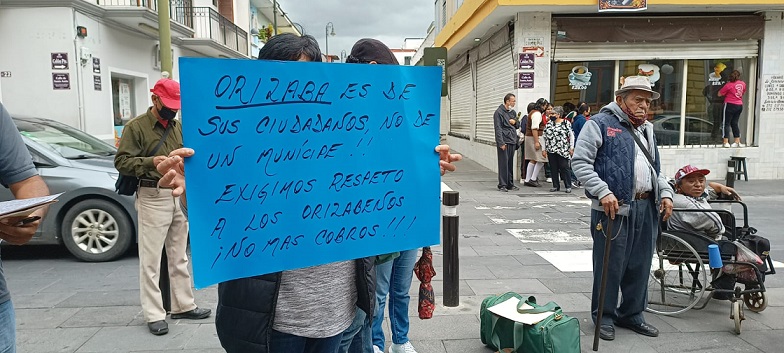 ORIZABA ES DE
SUS CIUDADANOS, NO DE
UN MUNÍCIPE!!
EXIGIMOS RESPETO
A LOS ORIZABEÑOS
¡NO MAS COBROS!!!